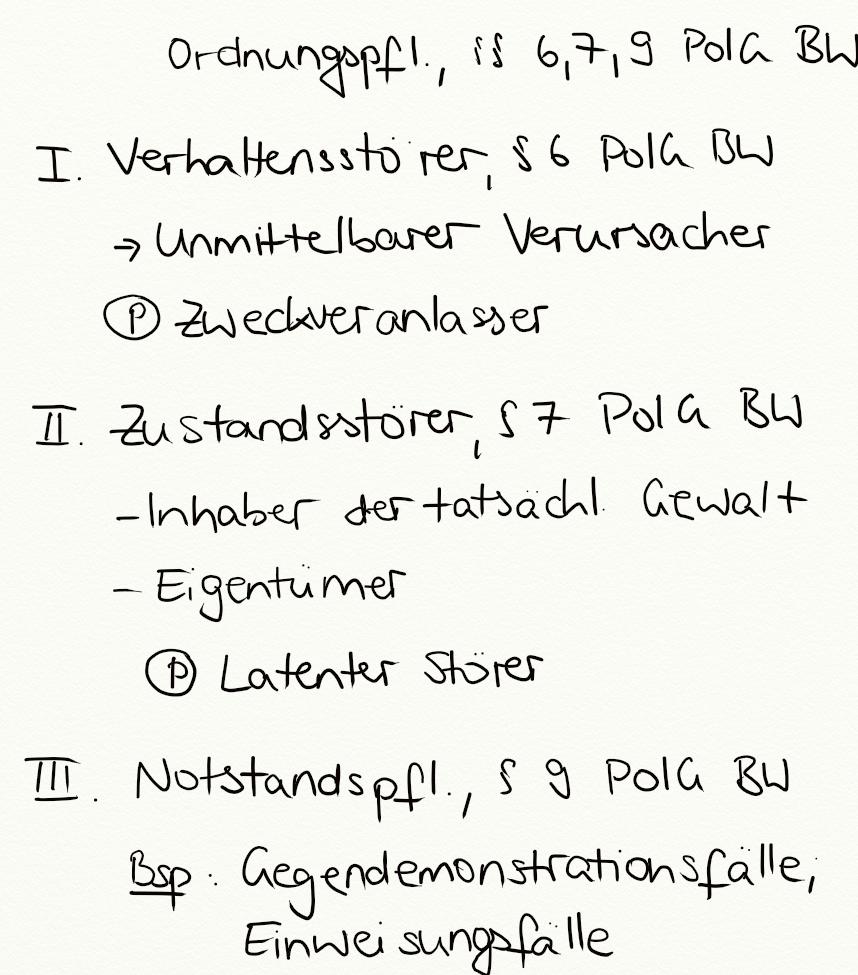 Ordnungspfl., §§ 6,7,9 PolG BW
I. Verhaltensstörer, § 6 PolG BW
→ Unmittelbarer Verursacher
Ⓟ Zweckveranlasser
II. Zustandsstörer, § 7 PolG BW
- Inhaber der tatsächl. Gewalt
- Eigentümer
Ⓟ Latenter Störer
III. Notstandspfl., § 9 PolG BW
Bsp: Gegendemonstrationsfälle,
Einweisungsfälle